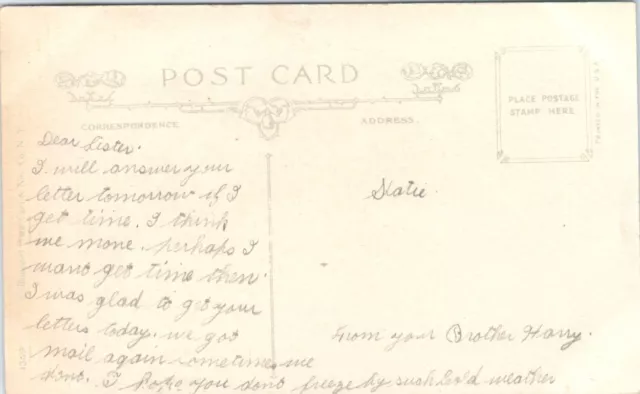 POST CARD
CORRESPONDENCE
ADDRESS
PLACE POSTAGE
STAMP HERE
Dear Sister.
I will answer your
letter tomorrow if I
get time. I think
me mone. perhaps I
want get time then.
I was glad to get your
letters today. we got
mail again sometimes we
dont. I hope you dont freeze by such Cold weather
Katie.
From your Brother Harry.